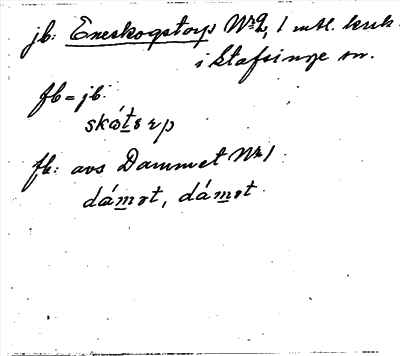 jb: Eneskogstorp No 2, 1 mtl. krk.
i Klafsinge sn.
fb = jb.
skótærp
fb: avs Dammet No 1
dámət, dámət.